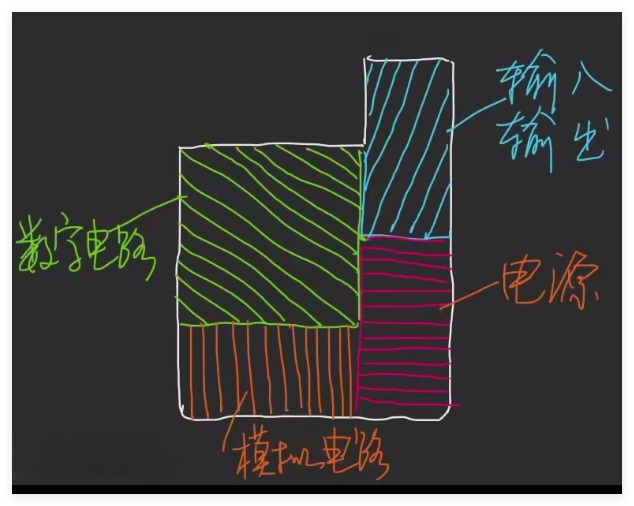 输入
输出
数字电路
电源
模拟电路